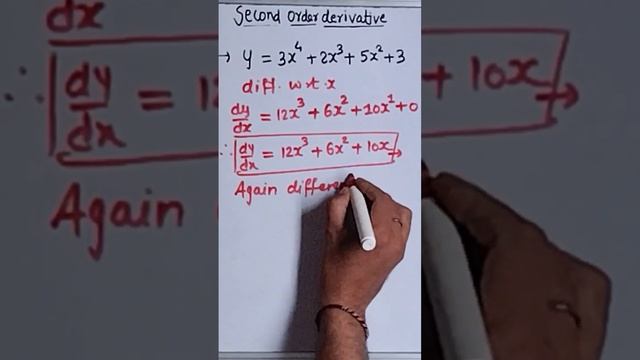 Second order derivative
→ y = 3x⁴ + 2x³ + 5x² + 3
diff. w.r.t. x
dy/dx = 12x³ + 6x² + 10x¹ + 0
∴ dy/dx = 12x³ + 6x² + 10x →
Again differe